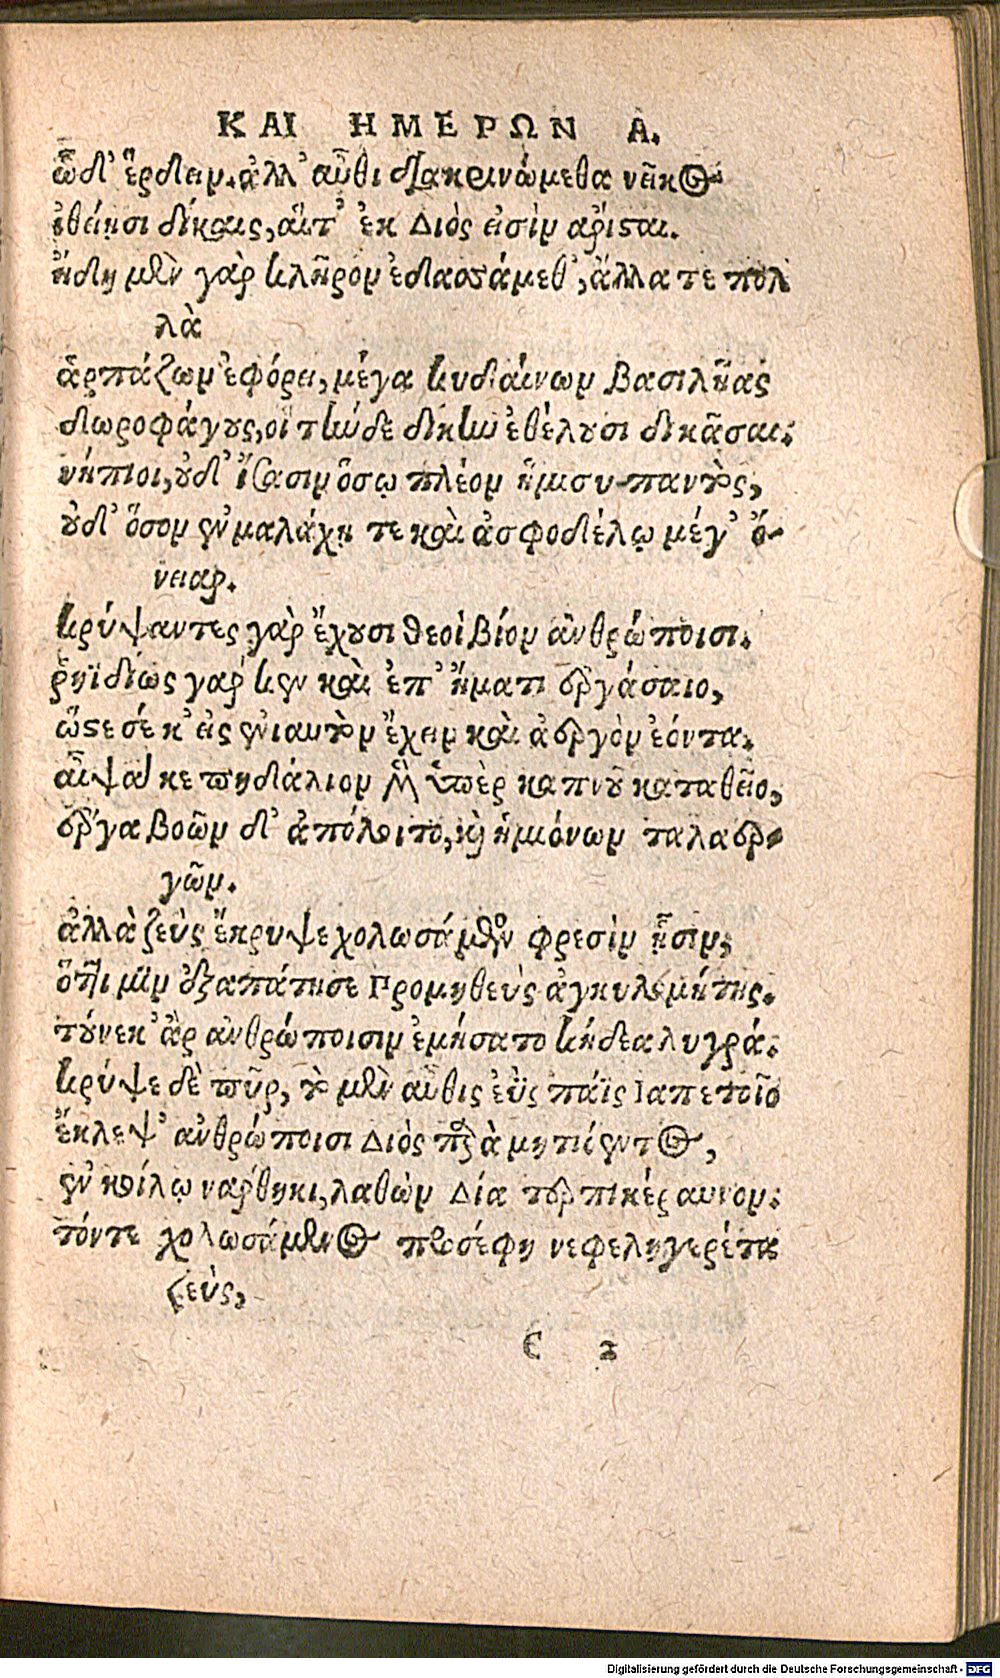 ΚΑΙ ΗΜΕΡΩΝ Α.
ὧδ' ἔρδειν. ἀλλ' αὖθι διακρινώμεθα νεῖκος
ἰθείῃσι δίκαις, αἵτ' ἐκ Διός εἰσιν ἄρισται.
ἤδη μὲν γὰρ κλῆρον ἐδασσάμεθ', ἄλλα τε πολ
λὰ
ἁρπάζων ἐφόρει, μέγα κυδαίνων βασιλῆας
δωροφάγους, οἳ τήνδε δίκην ἐθέλουσι δικᾶσαι.
νήπιοι, οὐδ' ἴσασιν ὅσῳ πλέον ἥμισυ παντὸς,
οὐδ' ὅσον ἐν μαλάχῃ τε καὶ ἀσφοδέλῳ μέγ' ὄ-
νειαρ.
κρύψαντες γὰρ ἔχουσι θεοὶ βίον ἀνθρώποισι.
ῥηϊδίως γάρ κεν καὶ ἐπ' ἤματι ἐργάσαιο,
ὥστε σέ κ' εἰς ἐνιαυτὸν ἔχειν καὶ ἀεργὸν ἐόντα.
αἶψά κε πηδάλιον μὲν ὑπὲρ καπνοῦ καταθεῖο,
ἔργα βοῶν δ' ἀπόλοιτο, καὶ ἡμιόνων ταλαερ-
γῶν.
ἀλλὰ ζεὺς ἔκρυψε χολωσάμενος φρεσὶν ᾗσιν,
ὅττι μιν ἐξαπάτησε Προμηθεὺς ἀγκυλομήτης.
τούνεκ' ἄρ ἀνθρώποισιν ἐμήσατο κήδεα λυγρά.
κρύψε δὲ πῦρ, τὸ μὲν αὖθις ἐῢς πάϊς Ιαπετοῖο
ἔκλεψ' ἀνθρώποισι Διὸς παρὰ μητιόεντος,
ἐν κοίλῳ νάρθηκι, λαθὼν Δία τερπικέραυνον.
τόν τε χολωσάμενος προσέφη νεφεληγερέτα
ζεὺς,
C 2
Digitalisierung gefördert durch die Deutsche Forschungsgemeinschaft - DFG